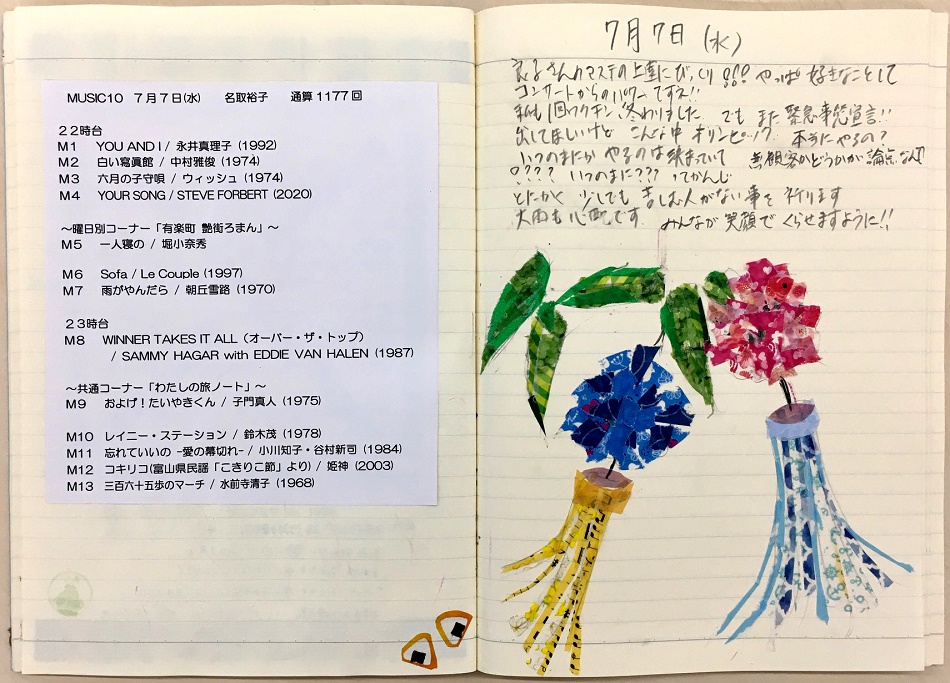 MUSIC10 7月7日(水) 名取裕子 通算1177回
22時台
M1 YOU AND I / 永井真理子 (1992)
M2 白い寫眞館 / 中村雅俊 (1974)
M3 六月の子守唄 / ウィッシュ (1974)
M4 YOUR SONG / STEVE FORBERT (2020)
～曜日別コーナー「有楽町 艶街ろまん」～
M5 一人寝の / 堀小奈秀
M6 Sofa / Le Couple (1997)
M7 雨がやんだら / 朝丘雪路 (1970)
23時台
M8 WINNER TAKES IT ALL (オーバー・ザ・トップ)
/ SAMMY HAGAR with EDDIE VAN HALEN (1987)
～共通コーナー「わたしの旅ノート」～
M9 およげ！たいやきくん / 子門真人 (1975)
M10 レイニー・ステーション / 鈴木茂 (1978)
M11 忘れていいの -愛の幕切れ- / 小川知子・谷村新司 (1984)
M12 コキリコ(富山県民謡「こきりこ節」より) / 姫神 (2003)
M13 三百六十五歩のマーチ / 水前寺清子 (1968)
7月7日 (水)
さんのマステの上達にびっくり !!! やっぱ 好きなことして
コンサートからのパワーですネ!!
私も1回ワクチン、終わりました でも また 緊急事態宣言!!
出してほしいけど こんな中 オリンピック 本当にやるの?
いつのまにか やるのは決まっていて 無観客かどうかが 論点なんて
???? いつのまに??? ってかんじ
とにかく 少しでも 苦しむ人がない事を 祈ります
大雨も心配です みんなが 笑顔で くらせますように!!